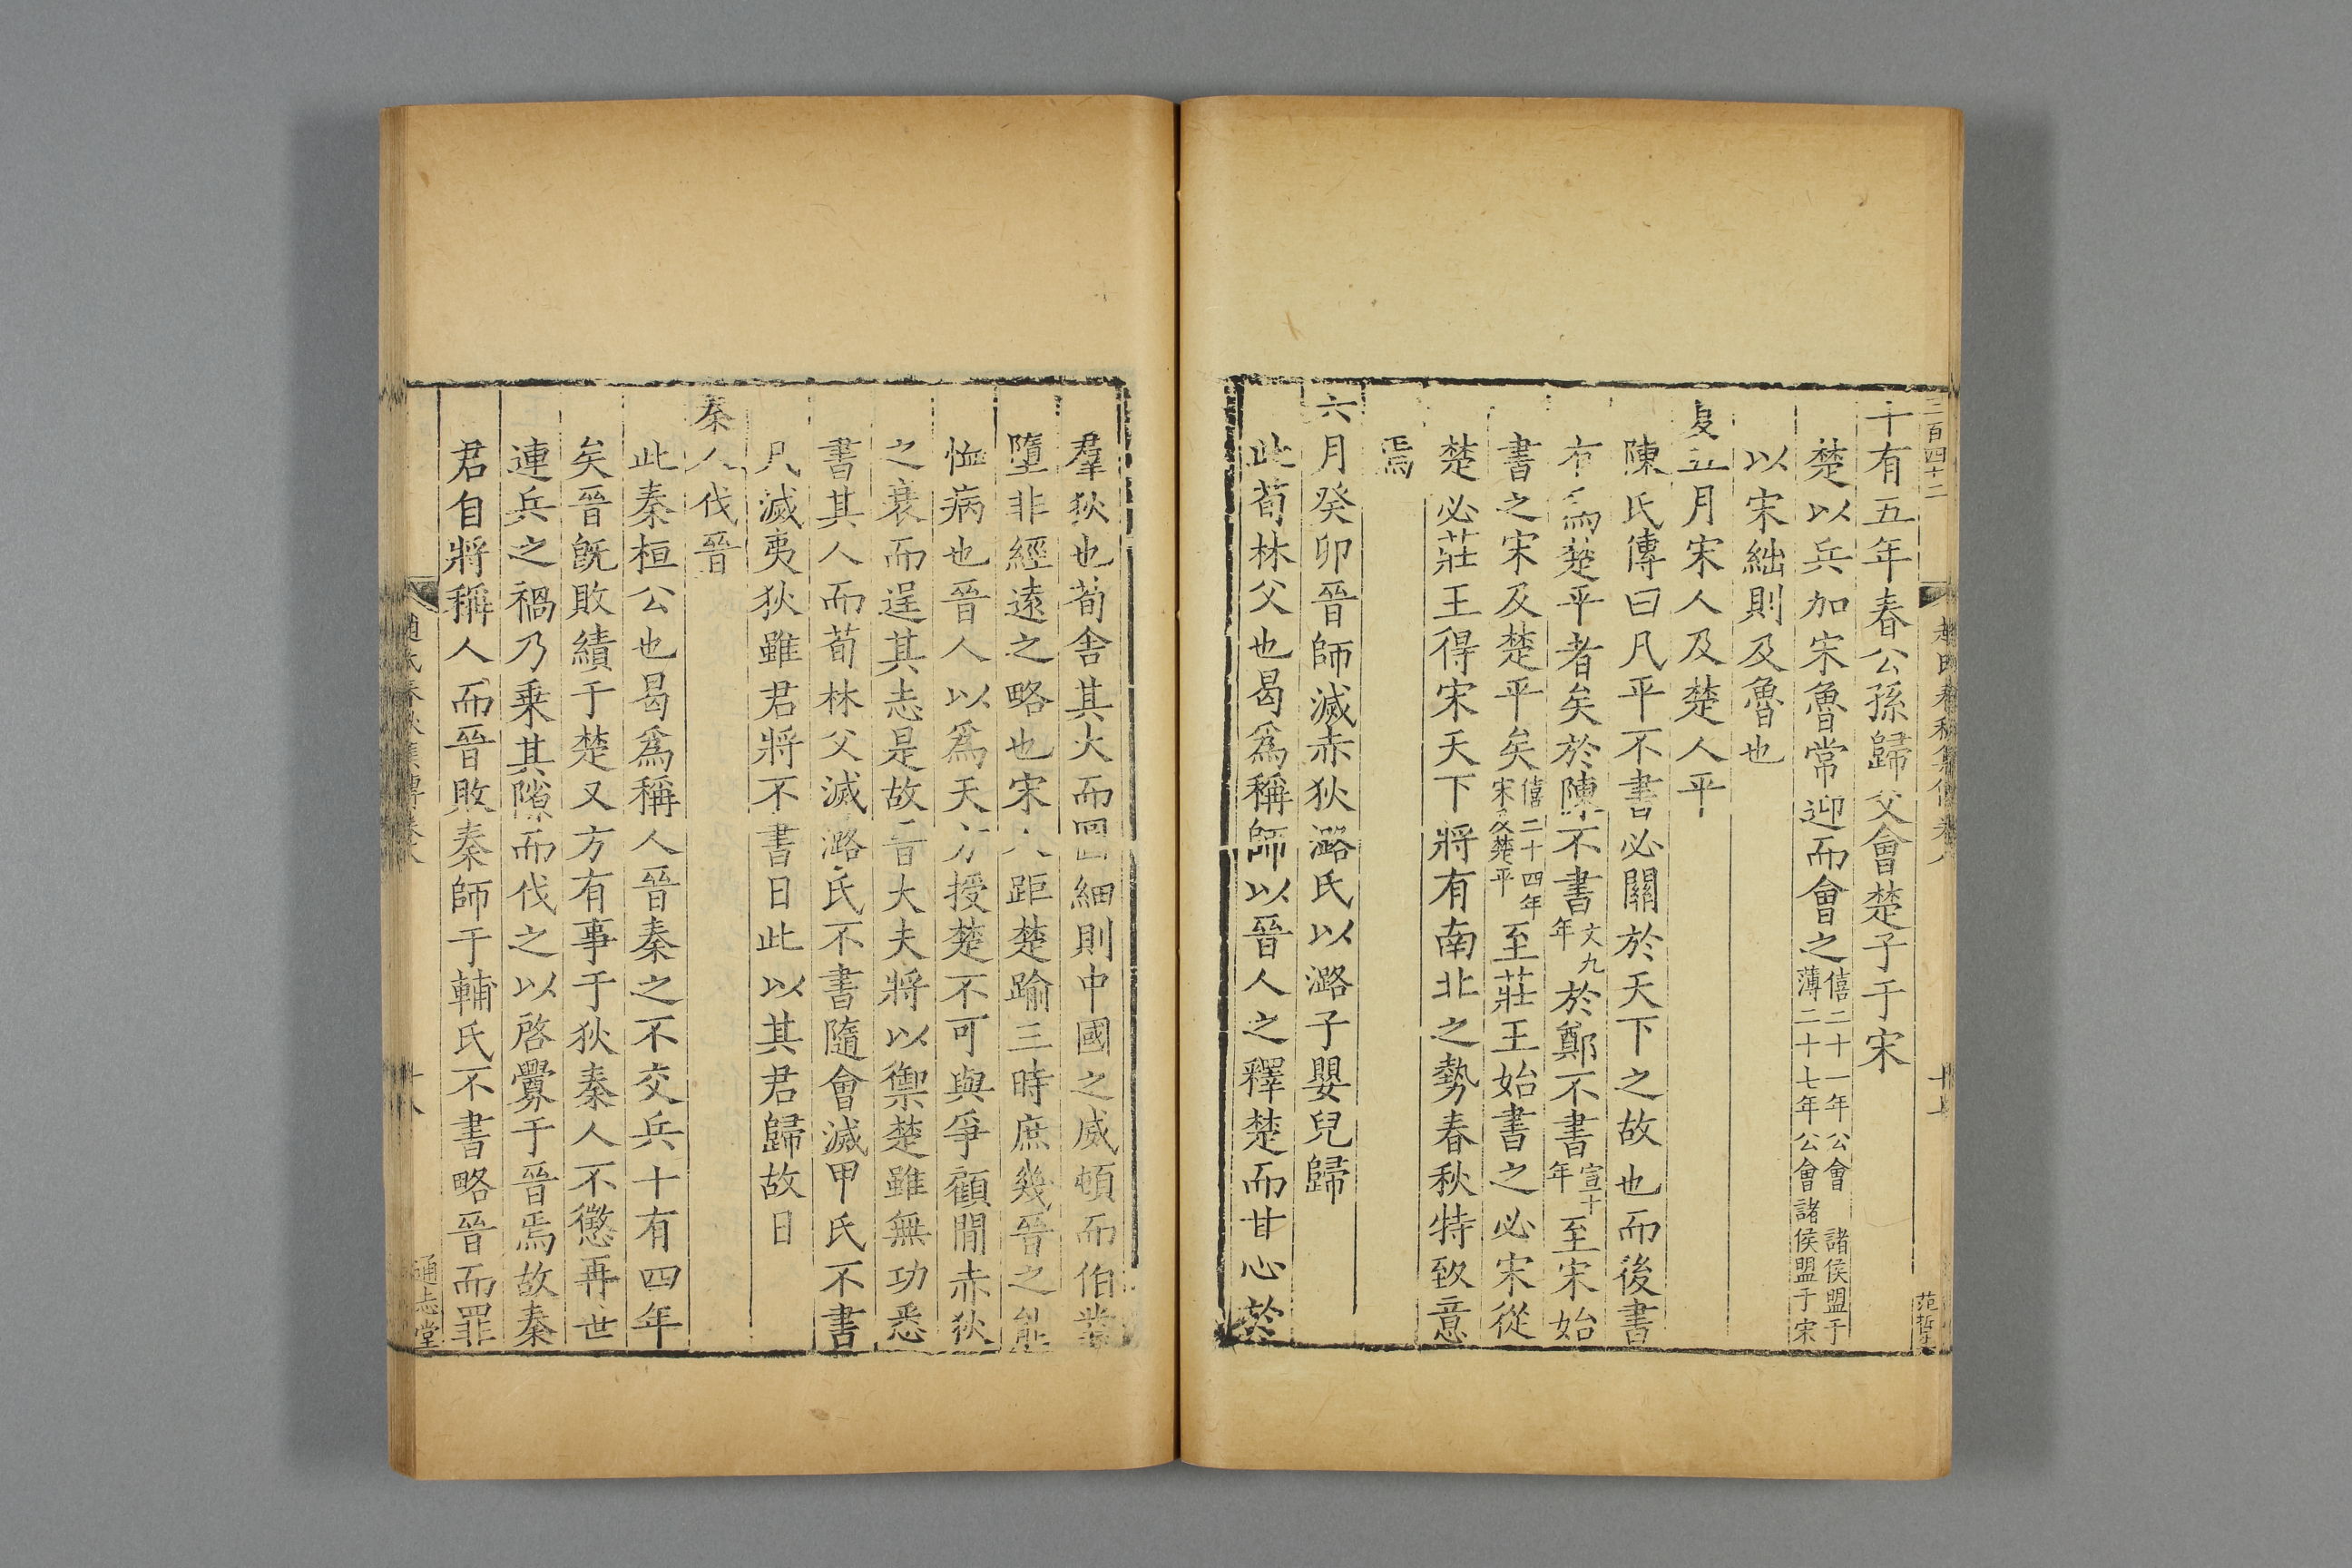 二百四十二
十有五年春公孫歸父會楚子于宋
楚以兵加宋魯常迎而會之僖二十一年公會諸侯盟于薄二十七年公會諸侯盟于宋
以宋絀則及魯也
夏五月宋人及楚人平
陳氏傳曰凡平不書必關於天下之故也而後書
有爲楚平者矣於陳不書文九年於鄭不書宣十年至宋始
書之宋及楚平矣僖二十四年宋及楚平至莊王始書之必宋從
楚必莊王得宋天下將有南北之勢春秋特致意
焉
六月癸卯晉師滅赤狄潞氏以潞子嬰兒歸
此荀林父也曷爲稱師以晉人之釋楚而甘心於
十七
范哲
羣狄也荀舍其大而圖細則中國之威頓而伯業
墮非經遠之略也宋人距楚踰三時庶幾晉之能
恤病也晉人以爲天方授楚不可與爭顧閒赤狄
之衰而逞其志是故晉大夫將以禦楚雖無功悉
書其人而荀林父滅潞氏不書隨會滅甲氏不書
凡滅夷狄雖君將不書日此以其君歸故日
秦人伐晉
此秦桓公也曷爲稱人晉秦之不交兵十有四年
矣晉旣敗績于楚又方有事于狄秦人不懲再世
連兵之禍乃乗其隙而伐之以啓釁于晉焉故秦
君自將稱人而晉敗秦師于輔氏不書略晉而罪
趙氏春秋集傳卷八
十八
通志堂